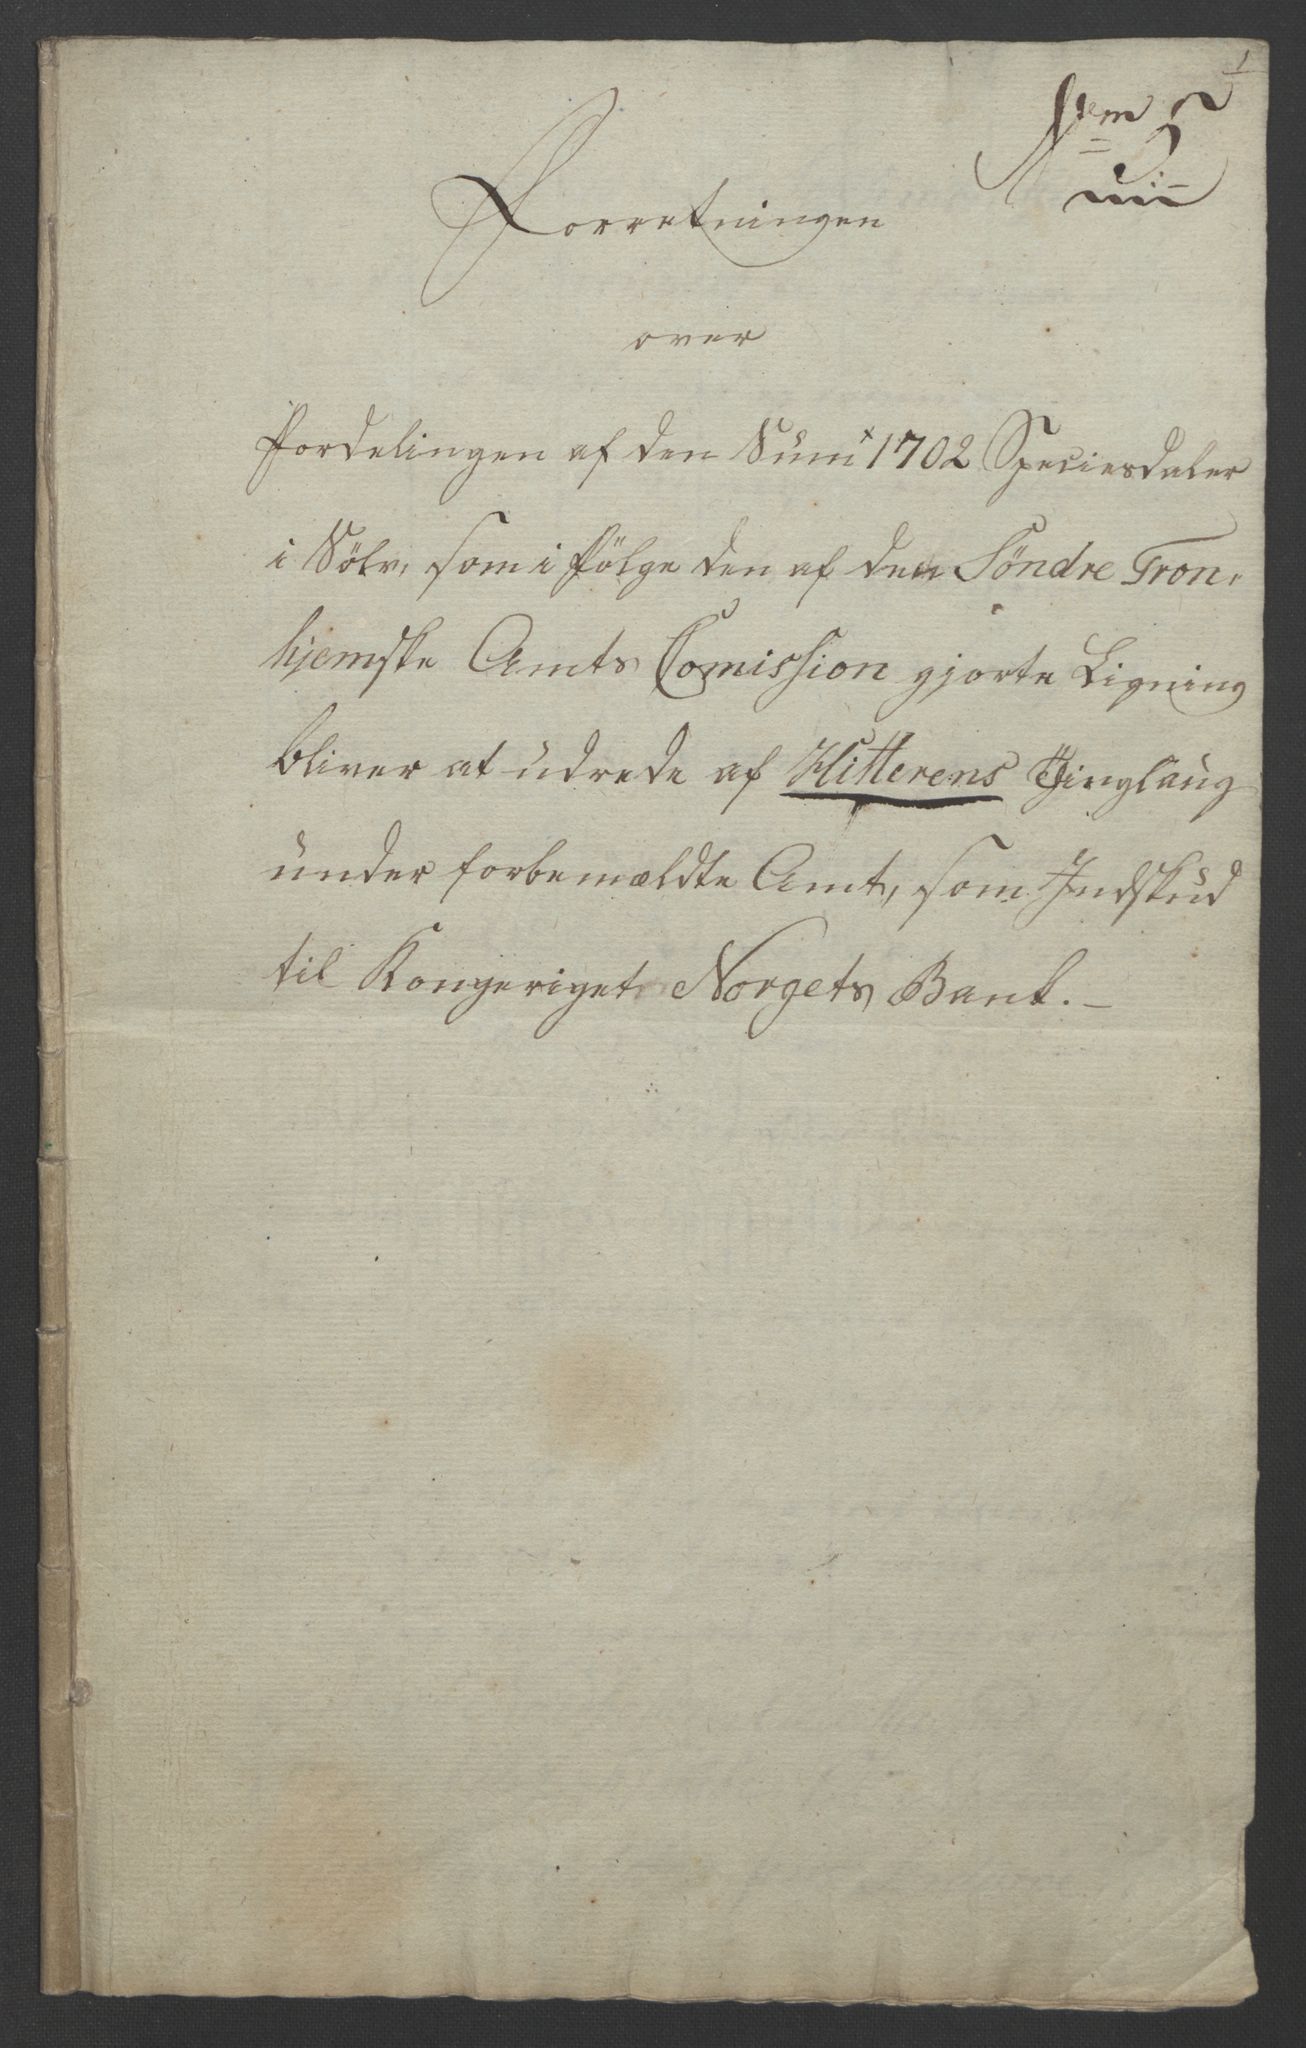 1
Forretningen
over
Fordelingen af den Sum 1702 Speciesdaler
i Sölv, som i Fölge den af den Söndre Tron,
hjemske Amts Comission gjorte Ligning
bliver at udrede af Hitterens Tinglaug
under forbemældte Amt, som Indskud
til Kongeriget Norgets Bank. –